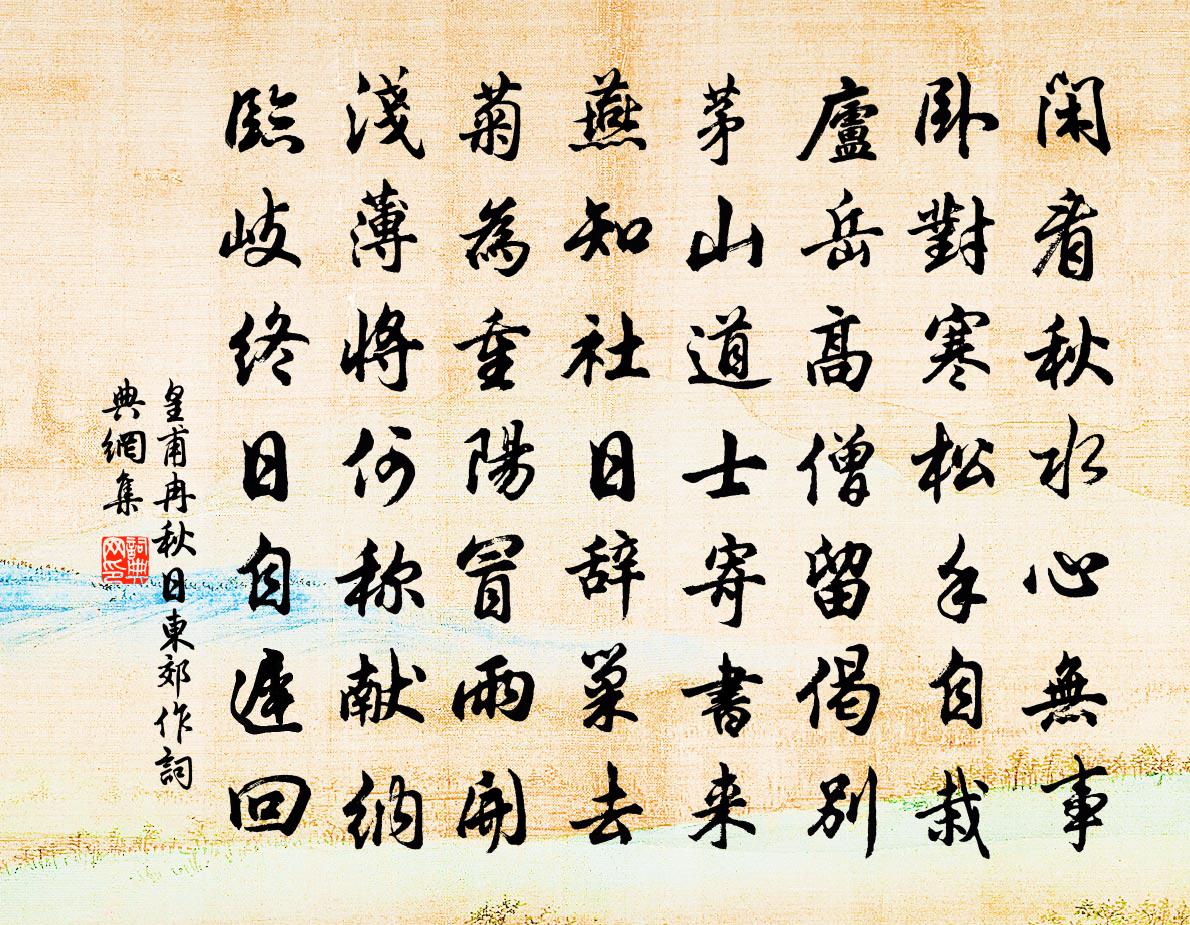 閑看秋水心無事
卧對寒松手自栽
廬岳髙僧留偈別
茅山道士寄書来
燕知社日辞巢去
菊為重陽冒雨開
淺薄將何称献納
臨岐終日自遲回
皇甫冉秋日東郊作詞
典網集
詞典
网印